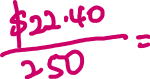 $22.40
250 =